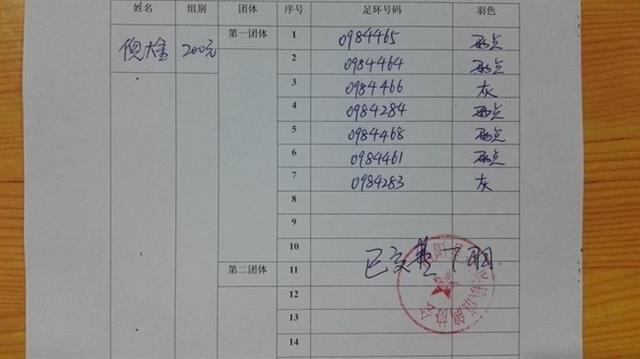 姓名 组别 团体 序号 足环号码 羽色
倪大金 200元 第一团体 1 0984465 雨点
2 0984464 雨点
3 0984466 灰
4 0984284 雨点
5 0984468 雨点
6 0984461 雨点
7 0984283 灰
8
9
10
第二团体 11 已交 7羽
12
13
14
信鸽协会